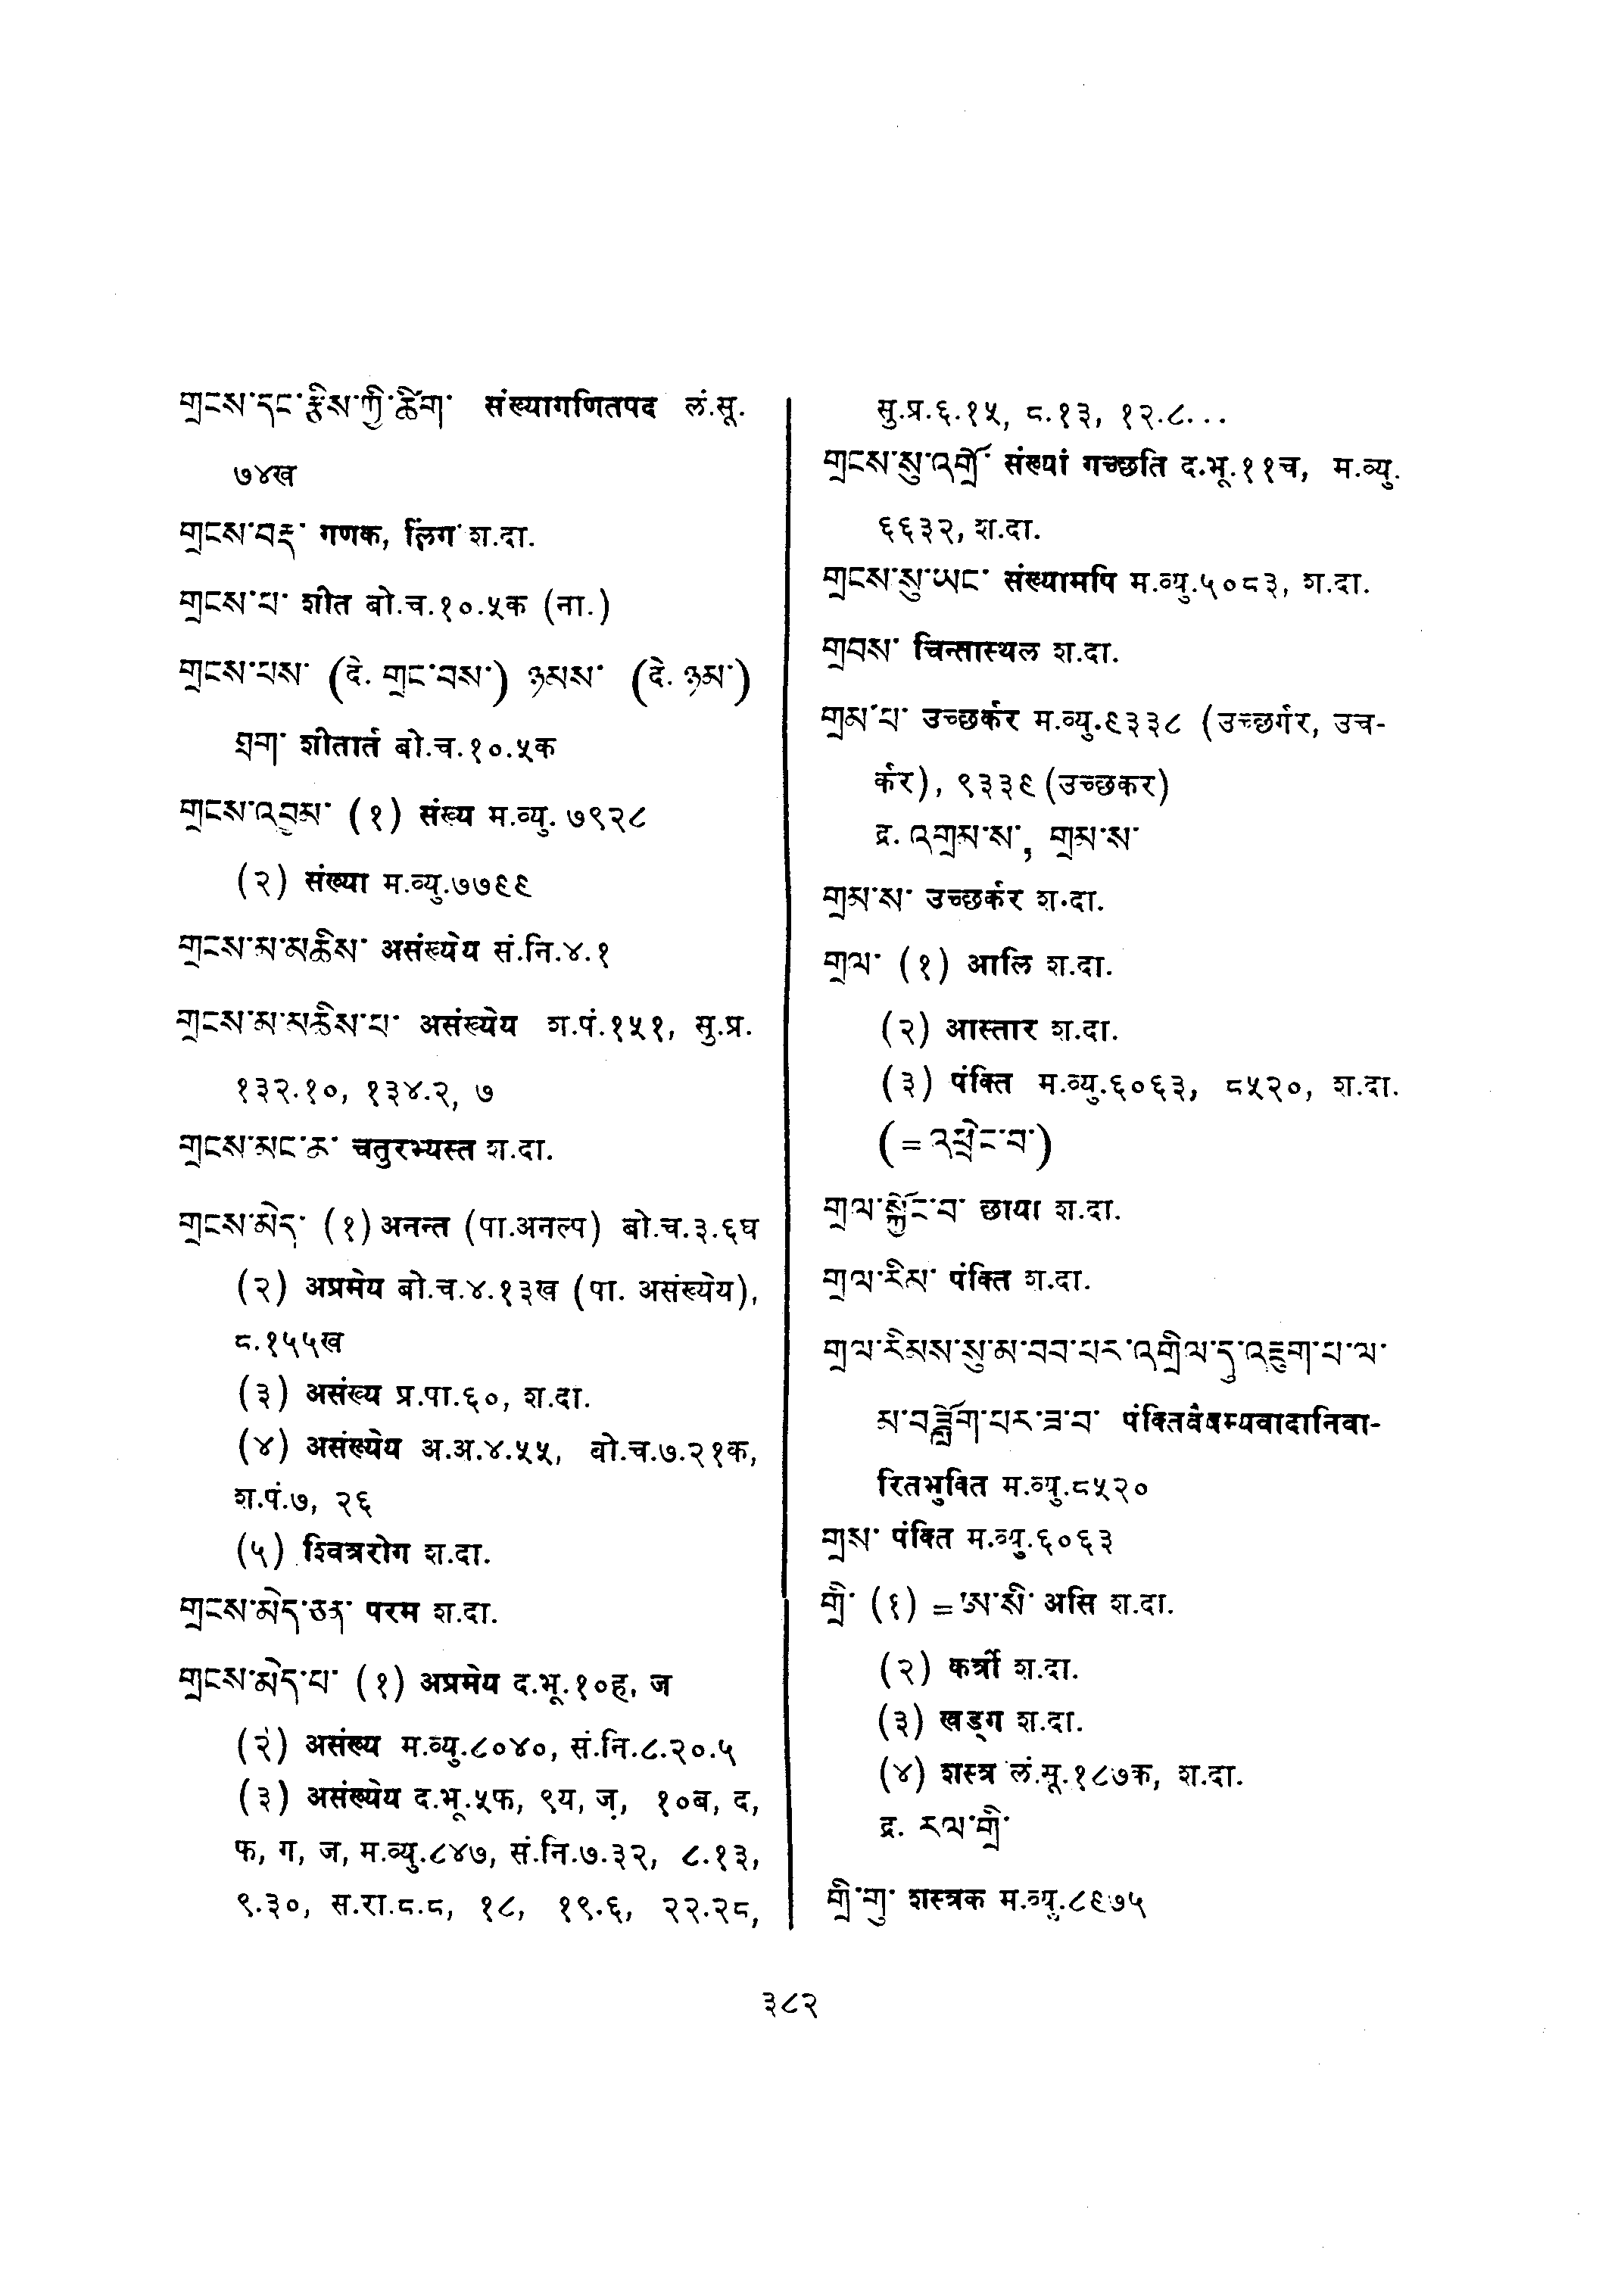 གྲངས་དང་རྩིས་ཀྱི་ཚིག་ संख्यागणितपद लं.सू.
७४ख
གྲངས་བརྡ་ गणक, लिंग श.दा.
གྲངས་པ་ शीत बो.च.१०.५क (ना.)
གྲངས་པས་ (दे. གྲང་བས་) ཉམས་ (दे. ཉམ་)
ཐག་ शीतार्त बो.च.१०.५क
གྲངས་འབྱམ་ (१) संख्य म.व्यु. ७९२८
(२) संख्या म.व्यु.७७९९
གྲངས་མ་མཆིས་ असंख्येय सं.नि.४.१
གྲངས་མ་མཆིས་པ་ असंख्येय श.पं.१५१, सु.प्र.
१३२.१०, १३४.२, ७
གྲངས་མང་ཆ་ चतुरभ्यस्त श.दा.
གྲངས་མེད་ (१) अनन्त (पा.अनल्प) बो.च.३.६घ
(२) अप्रमेय बो.च.४.१३ख (पा. असंख्येय),
८.१५५ख
(३) असंख्य प्र.पा.६०, श.दा.
(४) असंख्येय अ.अ.४.५५, बो.च.७.२१क,
श.पं.७, २६
(५) श्वित्ररोग श.दा.
གྲངས་མེད་ཅན་ परम श.दा.
གྲངས་མེད་པ་ (१) अप्रमेय द.भू.१०ह, ज
(२) असंख्य म.व्यु.८०४०, सं.नि.८.२०.५
(३) असंख्येय द.भू.५फ, ९य, ज़, १०ब, द,
फ, ग, ज, म.व्यु.८४७, सं.नि.७.३२, ८.१३,
९.३०, स.रा.८.८, १८, १९.६, २२.२८,
सु.प्र.६.१५, ८.१३, १२.८...
གྲངས་སུ་འགྲོ་ संख्यां गच्छति द.भू.११च, म.व्यु.
६६३२, श.दा.
གྲངས་སུ་ཡང་ संख्यामपि म.व्यु.५०८३, श.दा.
གྲབས་ चिन्तास्थल श.दा.
གྲམ་པ་ उच्छर्कर म.व्यु.९३३८ (उच्छर्गर, उच-
र्कर), ९३३९ (उच्छकर)
द्र. འགྲམ་ས་, གྲམ་ས་
གྲམ་ས་ उच्छर्कर श.दा.
གྲལ་ (१) आलि श.दा.
(२) आस्तार श.दा.
(३) पंक्ति म.व्यु.६०६३, ८५२०, श.दा.
(= འཕྲེང་བ་)
གྲལ་སྐྱོང་བ་ छाया श.दा.
གྲལ་རིམ་ पंक्ति श.दा.
གྲལ་རིམས་སུ་མ་བབ་པར་འགྲིལ་དུ་འཇུག་པ་ལ་
མ་བཟློག་པར་ཟ་བ་ पंक्तिवैषम्यवादानिवा-
रितभुक्ति म.व्यु.८५२०
གྲས་ पंक्ति म.व्यु.६०६३
གྲི་ (१) = ཨ་སི་ असि श.दा.
(२) कर्त्री श.दा.
(३) खड्ग श.दा.
(४) शस्त्र लं.सू.१८७क, श.दा.
द्र. རལ་གྲི་
གྲི་གུ་ शस्त्रक म.व्यु.८९७५
३८२